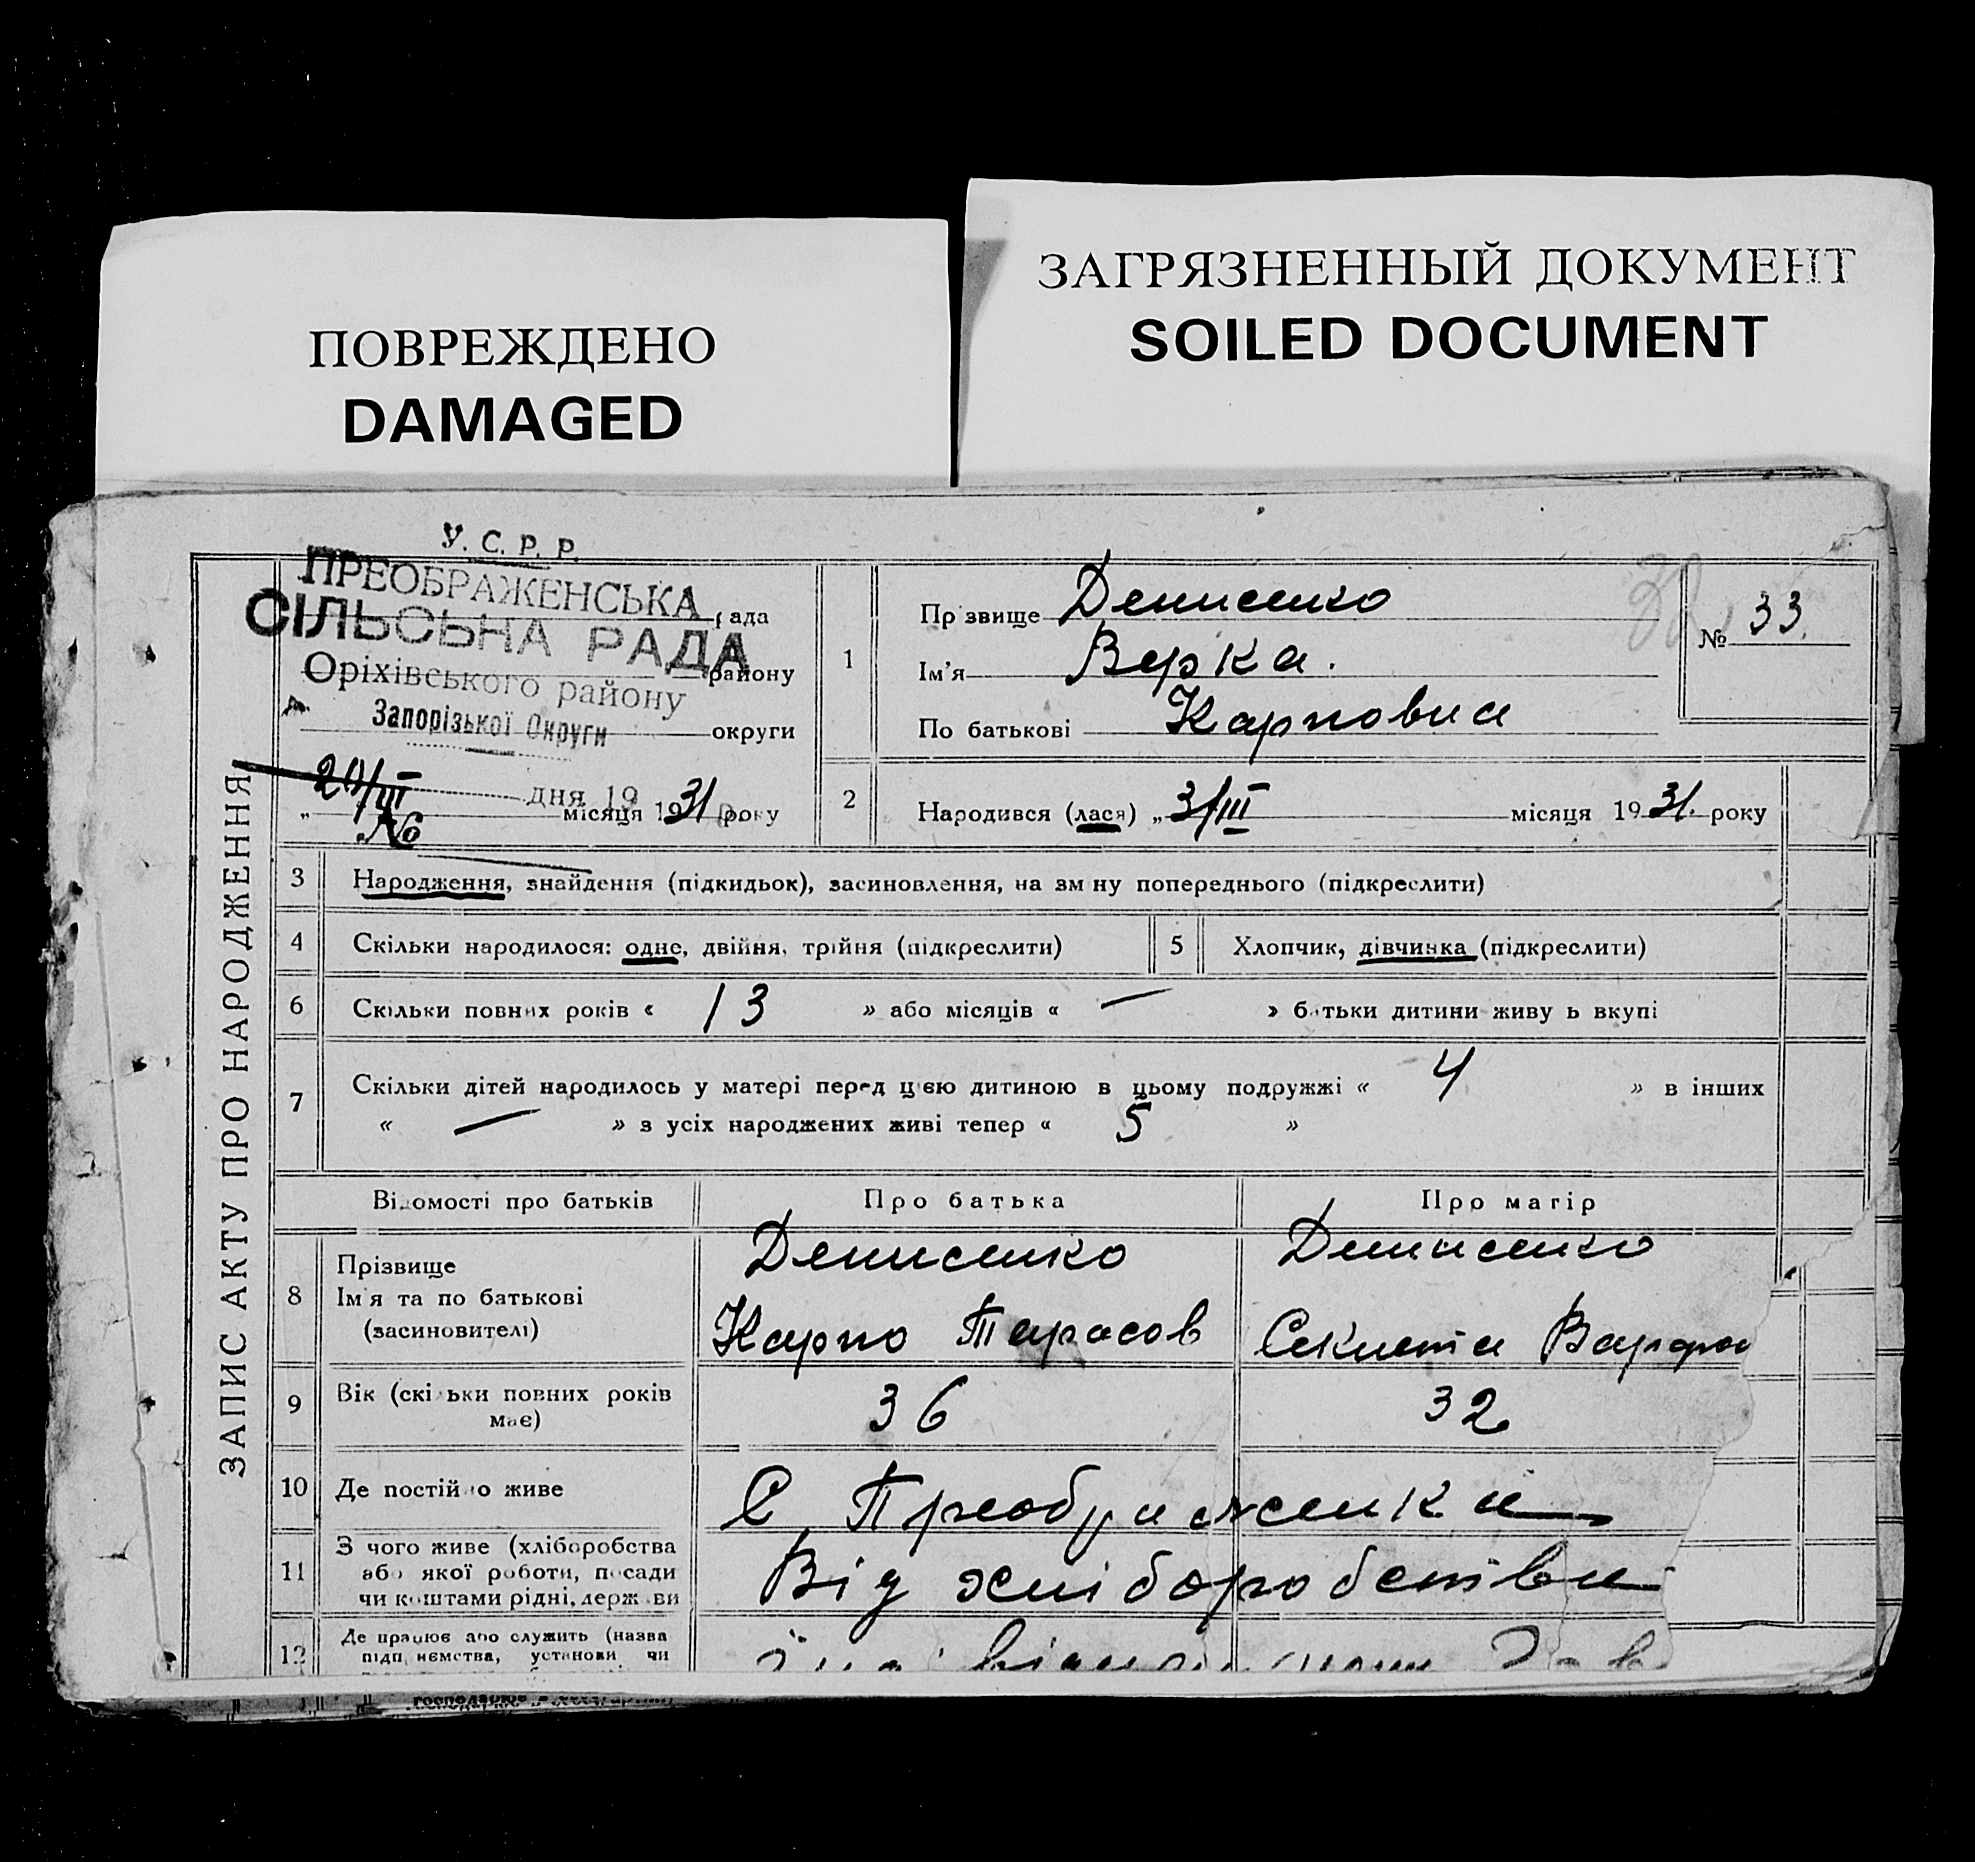 ПОВРЕЖДЕНО
DAMAGED
ЗАГРЯЗНЕННЫЙ ДОКУМЕНТ
SOILED DOCUMENT
ЗАПИС АКТУ ПРО НАРОДЖЕННЯ
У. С. Р. Р.
ПРЕОБРАЖЕНСЬКА рада
СІЛЬСЬНА РАДА
Оріхівського району району
Запорізької Округи округи
20/III дня 19
„ місяця 1931 року
№
1
Прізвище Денисенко
Ім'я Верка.
По батькові Карповна
№ 33.
2 Народився (лася) „ 3/III місяця 1931. року
3 Народження, знайдення (підкидьок), засиновлення, на зміну попереднього (підкреслити)
4 Скільки народилося: одне, двійня, трійня (підкреслити) 5 Хлопчик, дівчинка (підкреслити)
6 Скільки повних років « 13 » або місяців « — » батьки дитини живуть вкупі
7 Скільки дітей народилось у матері перед цією дитиною в цьому подружжі « 4 » в інших
« — » з усіх народжених живі тепер « 5 »
Відомості про батьків Про батька Про матір
8 Прізвище Денисенко Денисенко
Ім'я та по батькові
(засиновителі) Карпо Тарасов Секлета
9 Вік (скільки повних років
має) 36 32
10 Де постійно живе С Преображенка
11 З чого живе (хліборобства
або якої роботи, посади
чи коштами рідні, держави Від хліборобства
12 Де працює або служить (назва
підприємства, установи чи